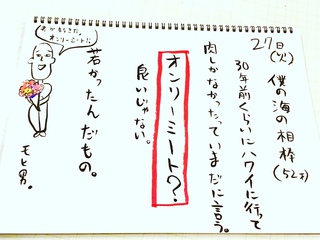 27日(火)
僕の海の相棒(52才)
30年前くらいにハワイに行って
肉しかなかったっていまだに言う。
オンリーミート?
良いじゃない。
若かったんだもの。
モヒ男。